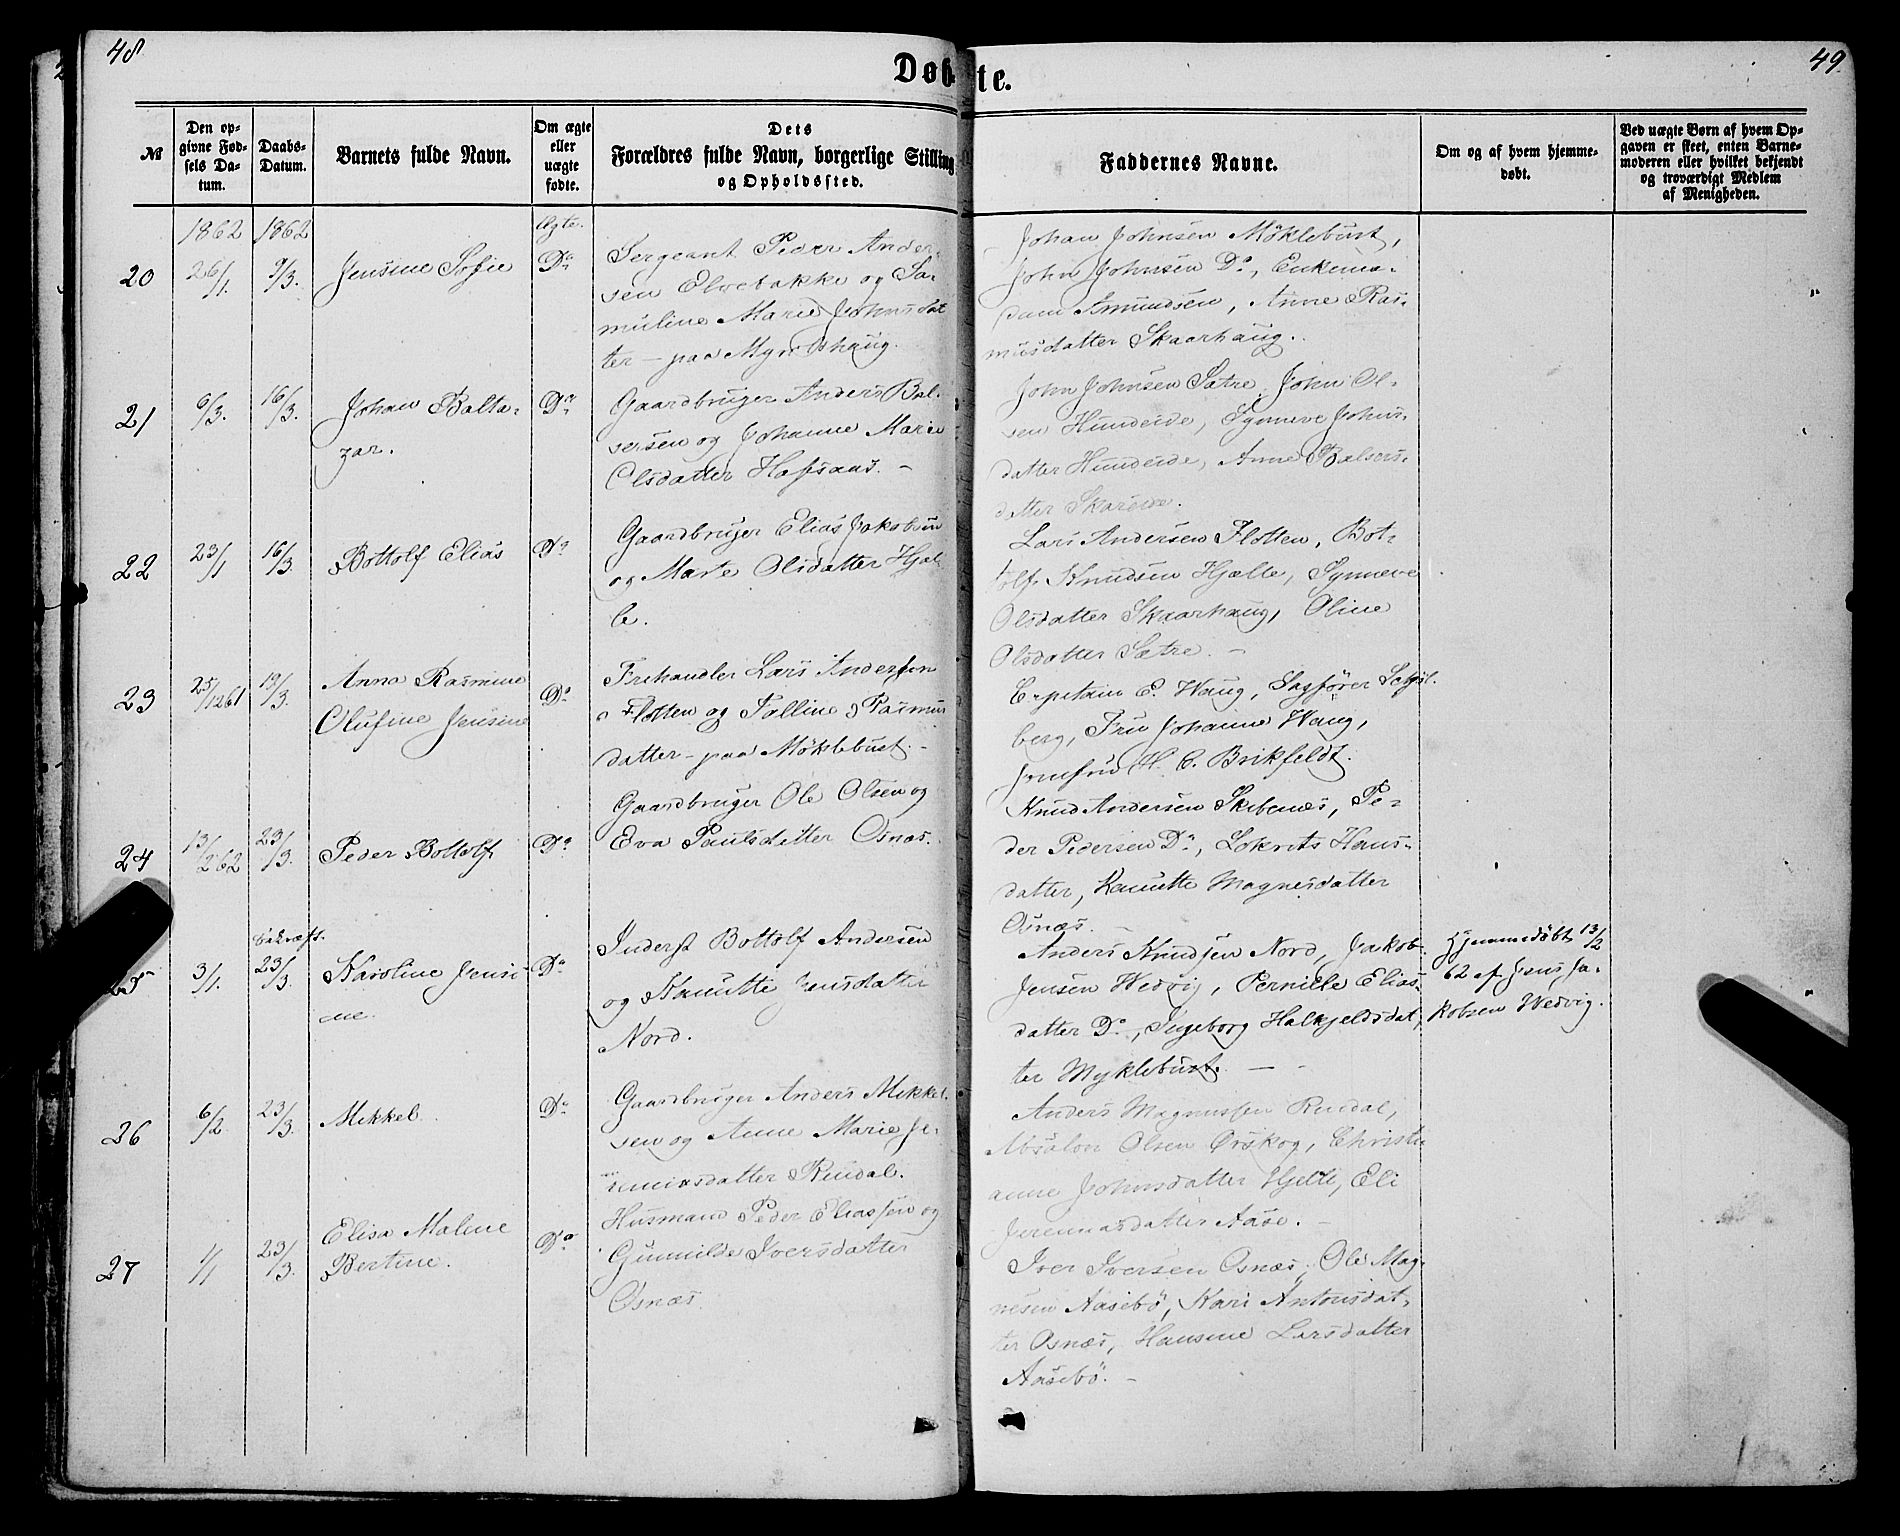 48
49.
Døbte.
№
Den opgivne Fødsels Datum.
Daabs-Datum.
Barnets fulde Navn.
Om ægte eller uægte fødte.
Dets Forældres fulde Navn, borgerlige Stilling og Opholdssted.
Faddernes Navne.
Om og af hvem hjemmedøbt.
Ved uægte Børn af hvem Opgaven er skeet, enten Barnemoderen eller hvilket bekjendt og troværdigt Medlem af Menigheden.
1862 1862 Ægte.
20 26/1. 9/3. Jensine Sofie Do
Sergeant Peder Ander-
sen Elvebakke og Sa-
muline Marie Johnsdat
ter – paa Myrebshaug.
Johan Johnsen Møklebust,
John Johnsen Do, Enkema-
dam Amundsen, Anne Ras-
musdatter Skaarhaug.
21 6/3. 16/3. Johan Balta-
zar. Do
Gaardbruger Anders Bal-
sersen og Johanne Marie
Olsdatter Hofsaas. –
John Johnsen Sætre, John Ol-
sen Hundeide, Synneve Johns-
datter Hundeide, Anne Balsers-
datter Skareide.
22 23/1 16/3. Bottolf Elias Do
Gaardbruger Elias Jakobsen
og Marte Olsdatter Hjel-
le.
Lars Andersen Flotten, Bot-
tolf Knudsen Hjælle, Synneve
Olsdatter Skaarhaug, Oline
Olsdatter Sætre. –
23 25/12 61 19/3. Anna Rasmine
Olufine Jensine Do
Frihandler Lars Anderssen
Flotten og Talline Rasmus
datter – paa Møklebust. –
Capitain E. Waug, Sagfører Schjel-
berg, Fru Johanne Waug,
Jomfru H. C. Brikfeldt.
24 13/2 62 23/3. Peder Bottolf Do
Gaardbruger Ole Olsen og
Eva Paulsdatter Osnæs.
Knud Andersen Skibenæs, Pe-
der Pedersen Do, Lokrits Hans-
datter, Kanutte Magnesdatter
Osnæs. –
bekræft.
25 3/1. 23/3. Karoline Jensi-
ne. Do
Inderst Bottolf Andersen
og Kanutte Jensdatter
Nord.
Anders Knudsen Nord, Jakob
Jensen Wedvig, Pernille Elias-
datter Do, Ingeborg Halkjeldsdat-
ter Myklebust. –
Hjemmedøbt 13/2
62 af Jens Ja-
kobsen Wedvig.
26 6/2. 23/3. Mikkel. Do
Gaardbruger Anders Mikkel-
sen og Anne Marie Je-
remiasdatter Rindal.
Anders Magnussen Rindal,
Absalon Olsen Ørskog, Christi
anne Johnsdatter Hjelle, Eli
Jeremiasdatter Aase. –
27 1/1 23/3. Elisa Malene
Bertine. Do
Husmand Peder Eliassen og
Gunnilde Iversdatter
Osnæs.
Iver Iversen Osnæs, Ole Mag-
nesen Aasebö, Kari Antonsdat-
ter Osnæs, Hansine Larsdatter
Aasebö. –